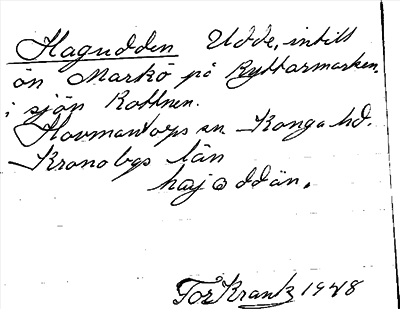 Hagudden Udde, intill
ön Markö på Ryttarmarken.
i sjön Rottnen.
Hovmantorps sn Konga hd.
Kronobgs län
hajoddän.
Tor Krantz 1948